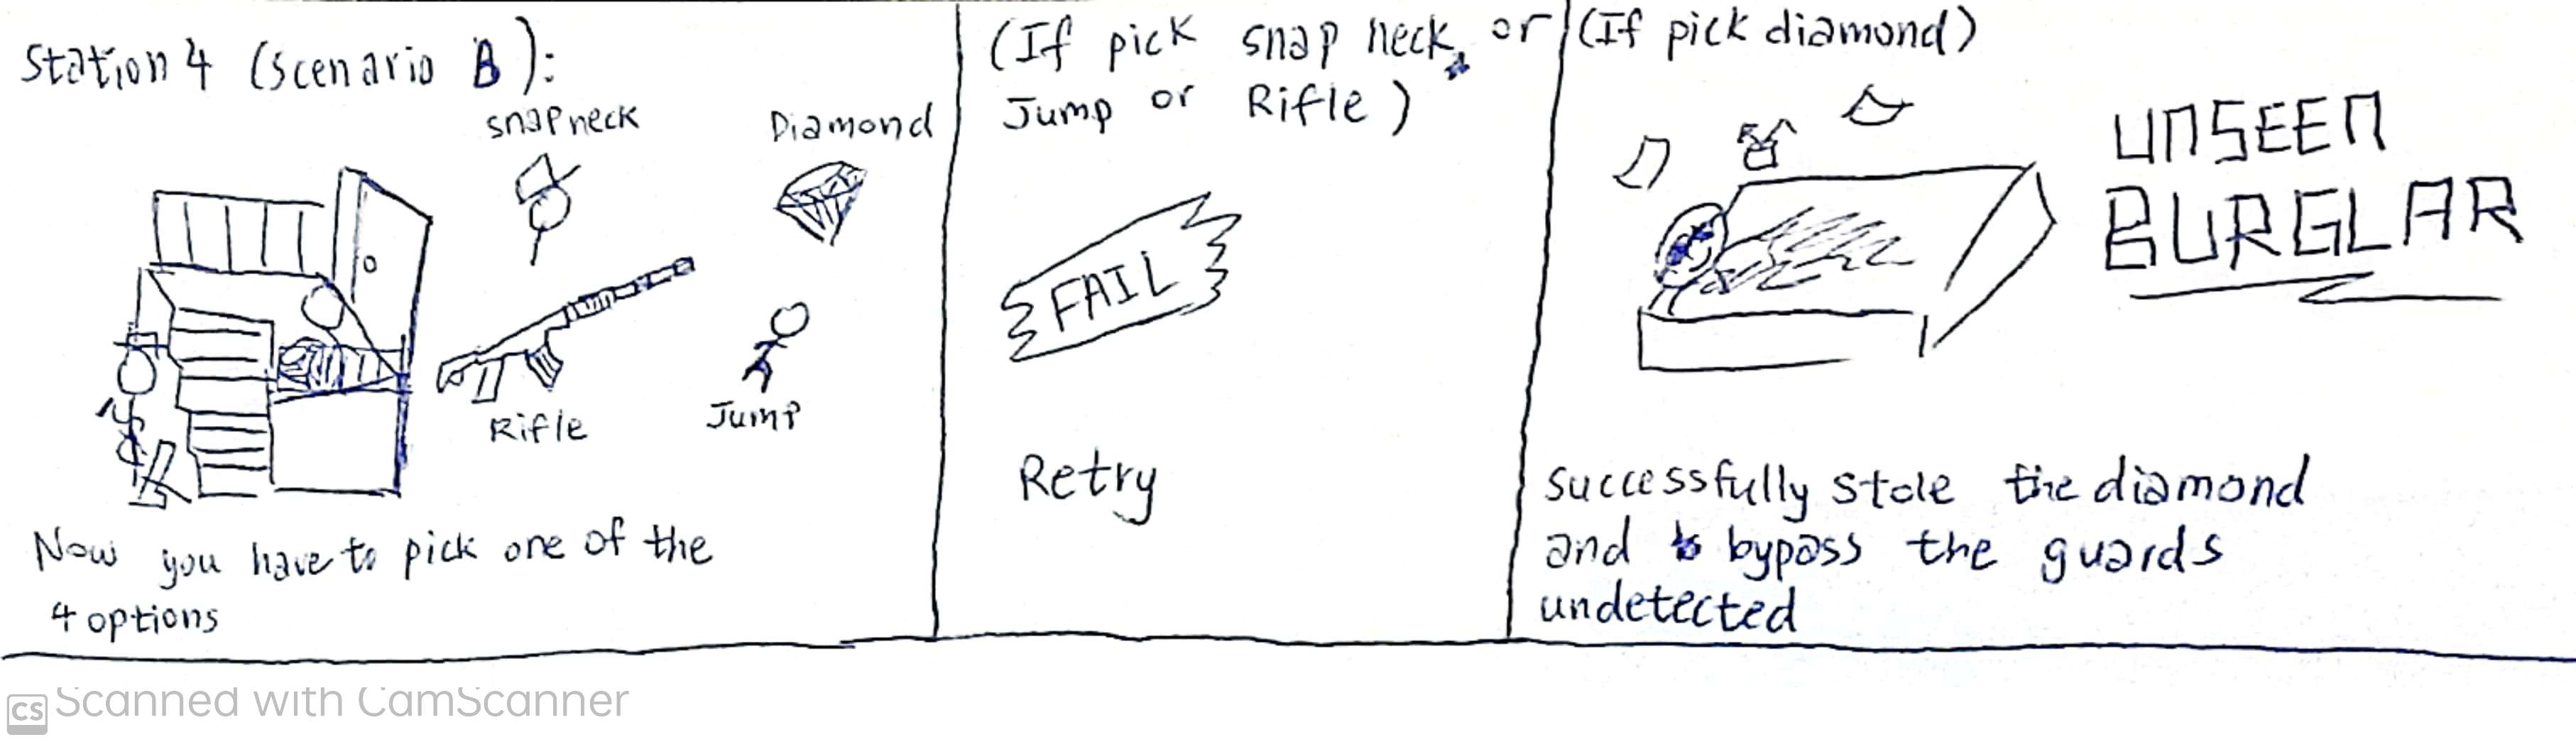 Station 4 (Scenario B):
snap neck
Diamond
Rifle
Jump
Now you have to pick one of the
4 options
(If pick snap neck, or
Jump or Rifle)
FAIL
Retry
(If pick diamond)
UNSEEN
BURGLAR
successfully stole the diamond
and bypass the guards
undetected
CS Scanned with CamScanner